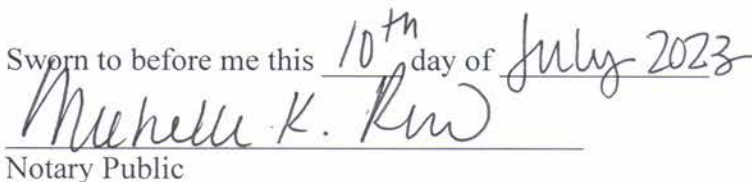 Sworn to before me this 10th day of July 2023
Michelle K.
Notary Public